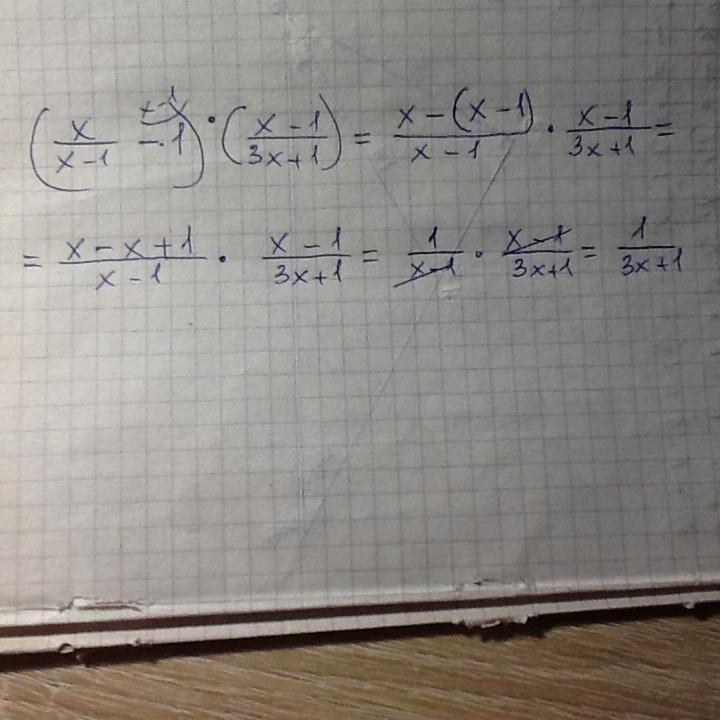 (x/(x-1) - 1^(x-1)) · ((x-1)/(3x+1)) = (x-(x-1))/(x-1) · (x-1)/(3x+1) =
= (x-x+1)/(x-1) · (x-1)/(3x+1) = 1/(x-1) · (x-1)/(3x+1) = 1/(3x+1)